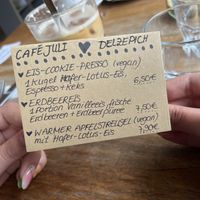 CAFÉ JULI ♥ DELZEPICH
♥ EIS-COOKIE-PRESSO (vegan)
1 Kugel Hafer-Lotus-Eis,
Espresso + Keks 6,50€
♥ ERDBEEREIS
1 Portion Vanilleeis, frische
Erdbeeren + Erdbeerpüree 7,50€
♥ WARMER APFELSTREUSEL (vegan)
mit Hafer-Lotus-Eis 7,90€